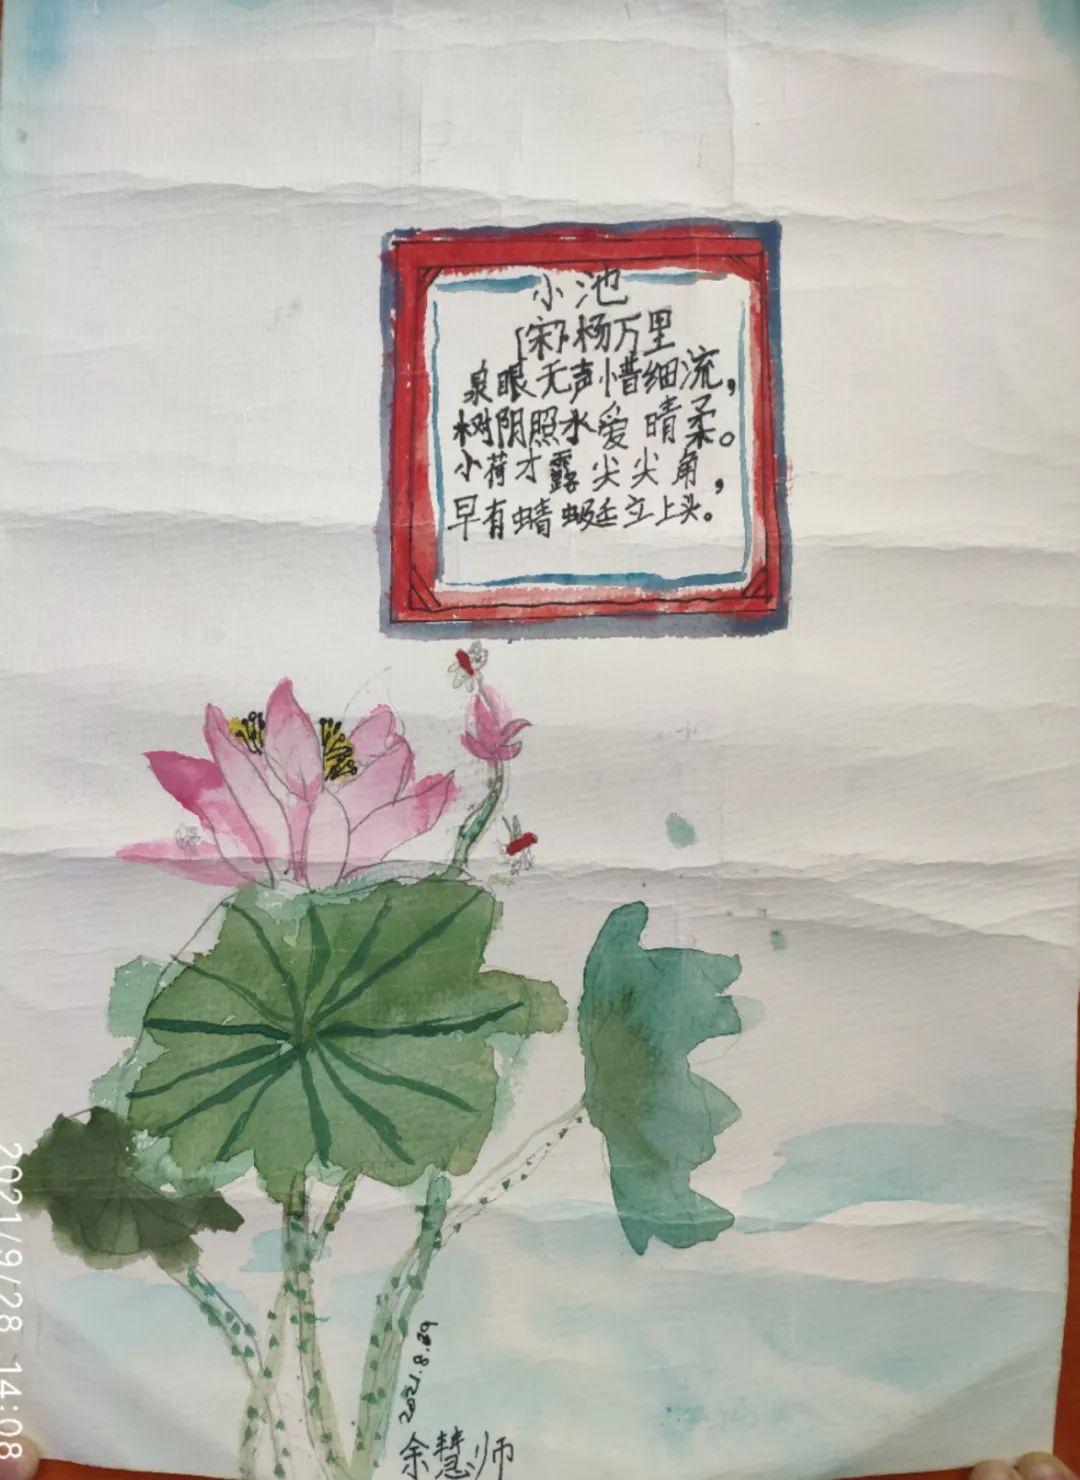 小池
〔宋〕杨万里
泉眼无声惜细流，
树阴照水爱晴柔。
小荷才露尖尖角，
早有蜻蜓立上头。
2021.8.29
余慧师
2021/9/28 14:08